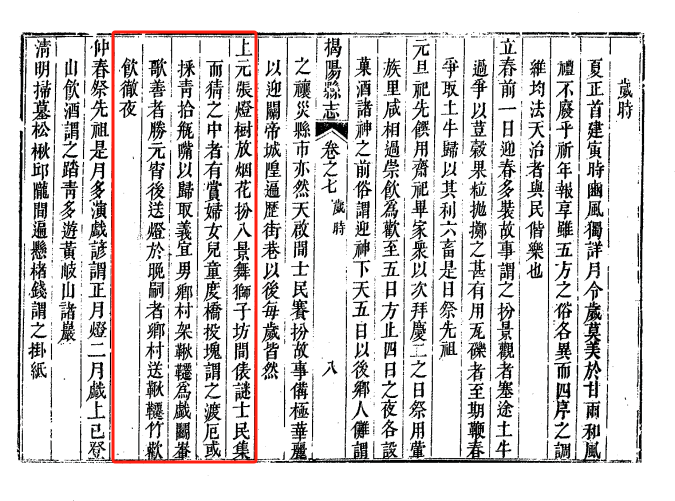 歲時
夏正首建寅時豳風獨詳月令歲莫美於甘雨和風
禮不廢乎祈年報享雖五方之俗各異而四序之調
維均法天治者與民偕樂也
立春前一日迎春多裝故事謂之扮景觀者塞途土牛
過爭以荳穀果粒拋擲之甚有用瓦礫者至期鞭春
爭取土牛歸以其利六畜是日祭先祖
元旦祀先饌用齋祀畢家衆以次拜慶二之日祭用葷
族里咸相過崇飲為歡至五日方止四日之夜各設
菓酒諸神之前俗謂迎神下天五日以後鄉人儺謂
揭陽縣志 卷之七 歲時 八
之禳災縣市亦然天啟間士民賽扮故事備極華麗
以迎關帝城隍遍歷街巷以後每歲皆然
上元張燈樹放烟花扮八景舞獅子坊間俵謎士民集
而猜之中者有賞婦女兒童度橋投塊謂之渡厄或
採青拾甎嘴以歸取義宜男鄉村架鞦韆為戲鬬畬
歌善者勝元宵後送燈於晚嗣者鄉村送鞦韆竹歡
飲徹夜
仲春祭先祖是月多演戲諺謂正月燈二月戲上巳登
山飲酒謂之踏青多遊黃岐山諸巖
清明掃墓松楸邱隴間遍懸楮錢謂之掛紙